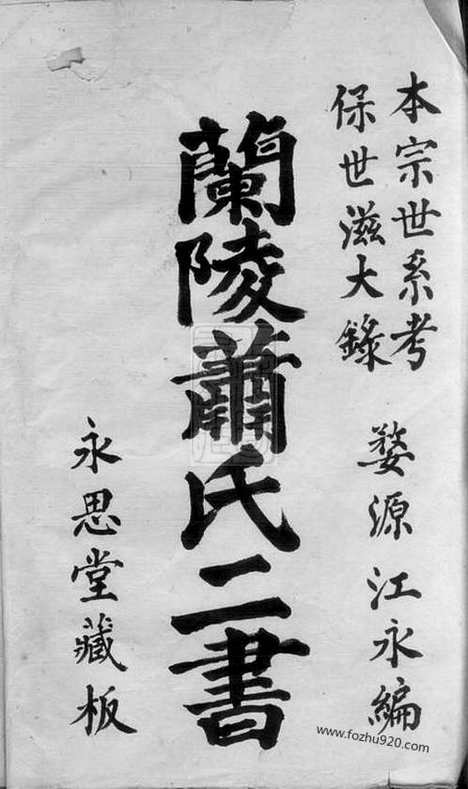 本宗世系考
保世滋大錄
婺源江永編
蘭陵蕭氏二書
永思堂藏板
www.fozhu920.com